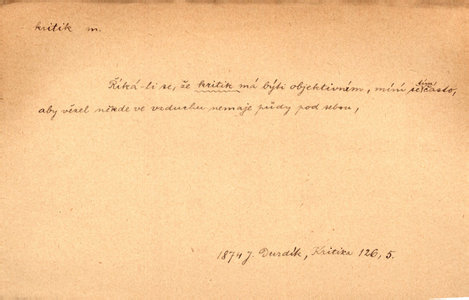 kritik m.
Říká-li se, že kritik má býti objektivném, míní se tím často,
aby vězel někde ve vzduchu nemaje půdy pod sebou,
1874 J. Durdík, Kritika 126, 5.